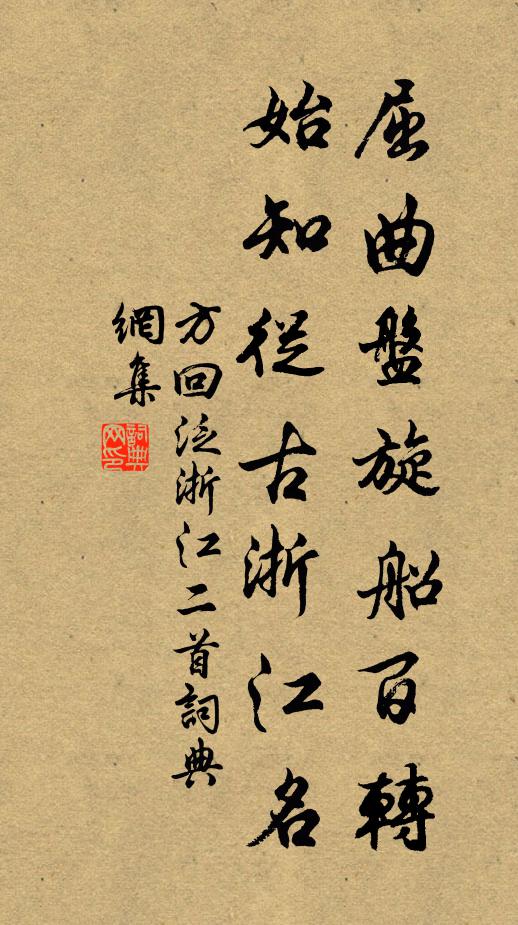 屈曲盤旋船百轉
始知從古浙江名
方回泛浙江二首詞典
網集
詞典网印